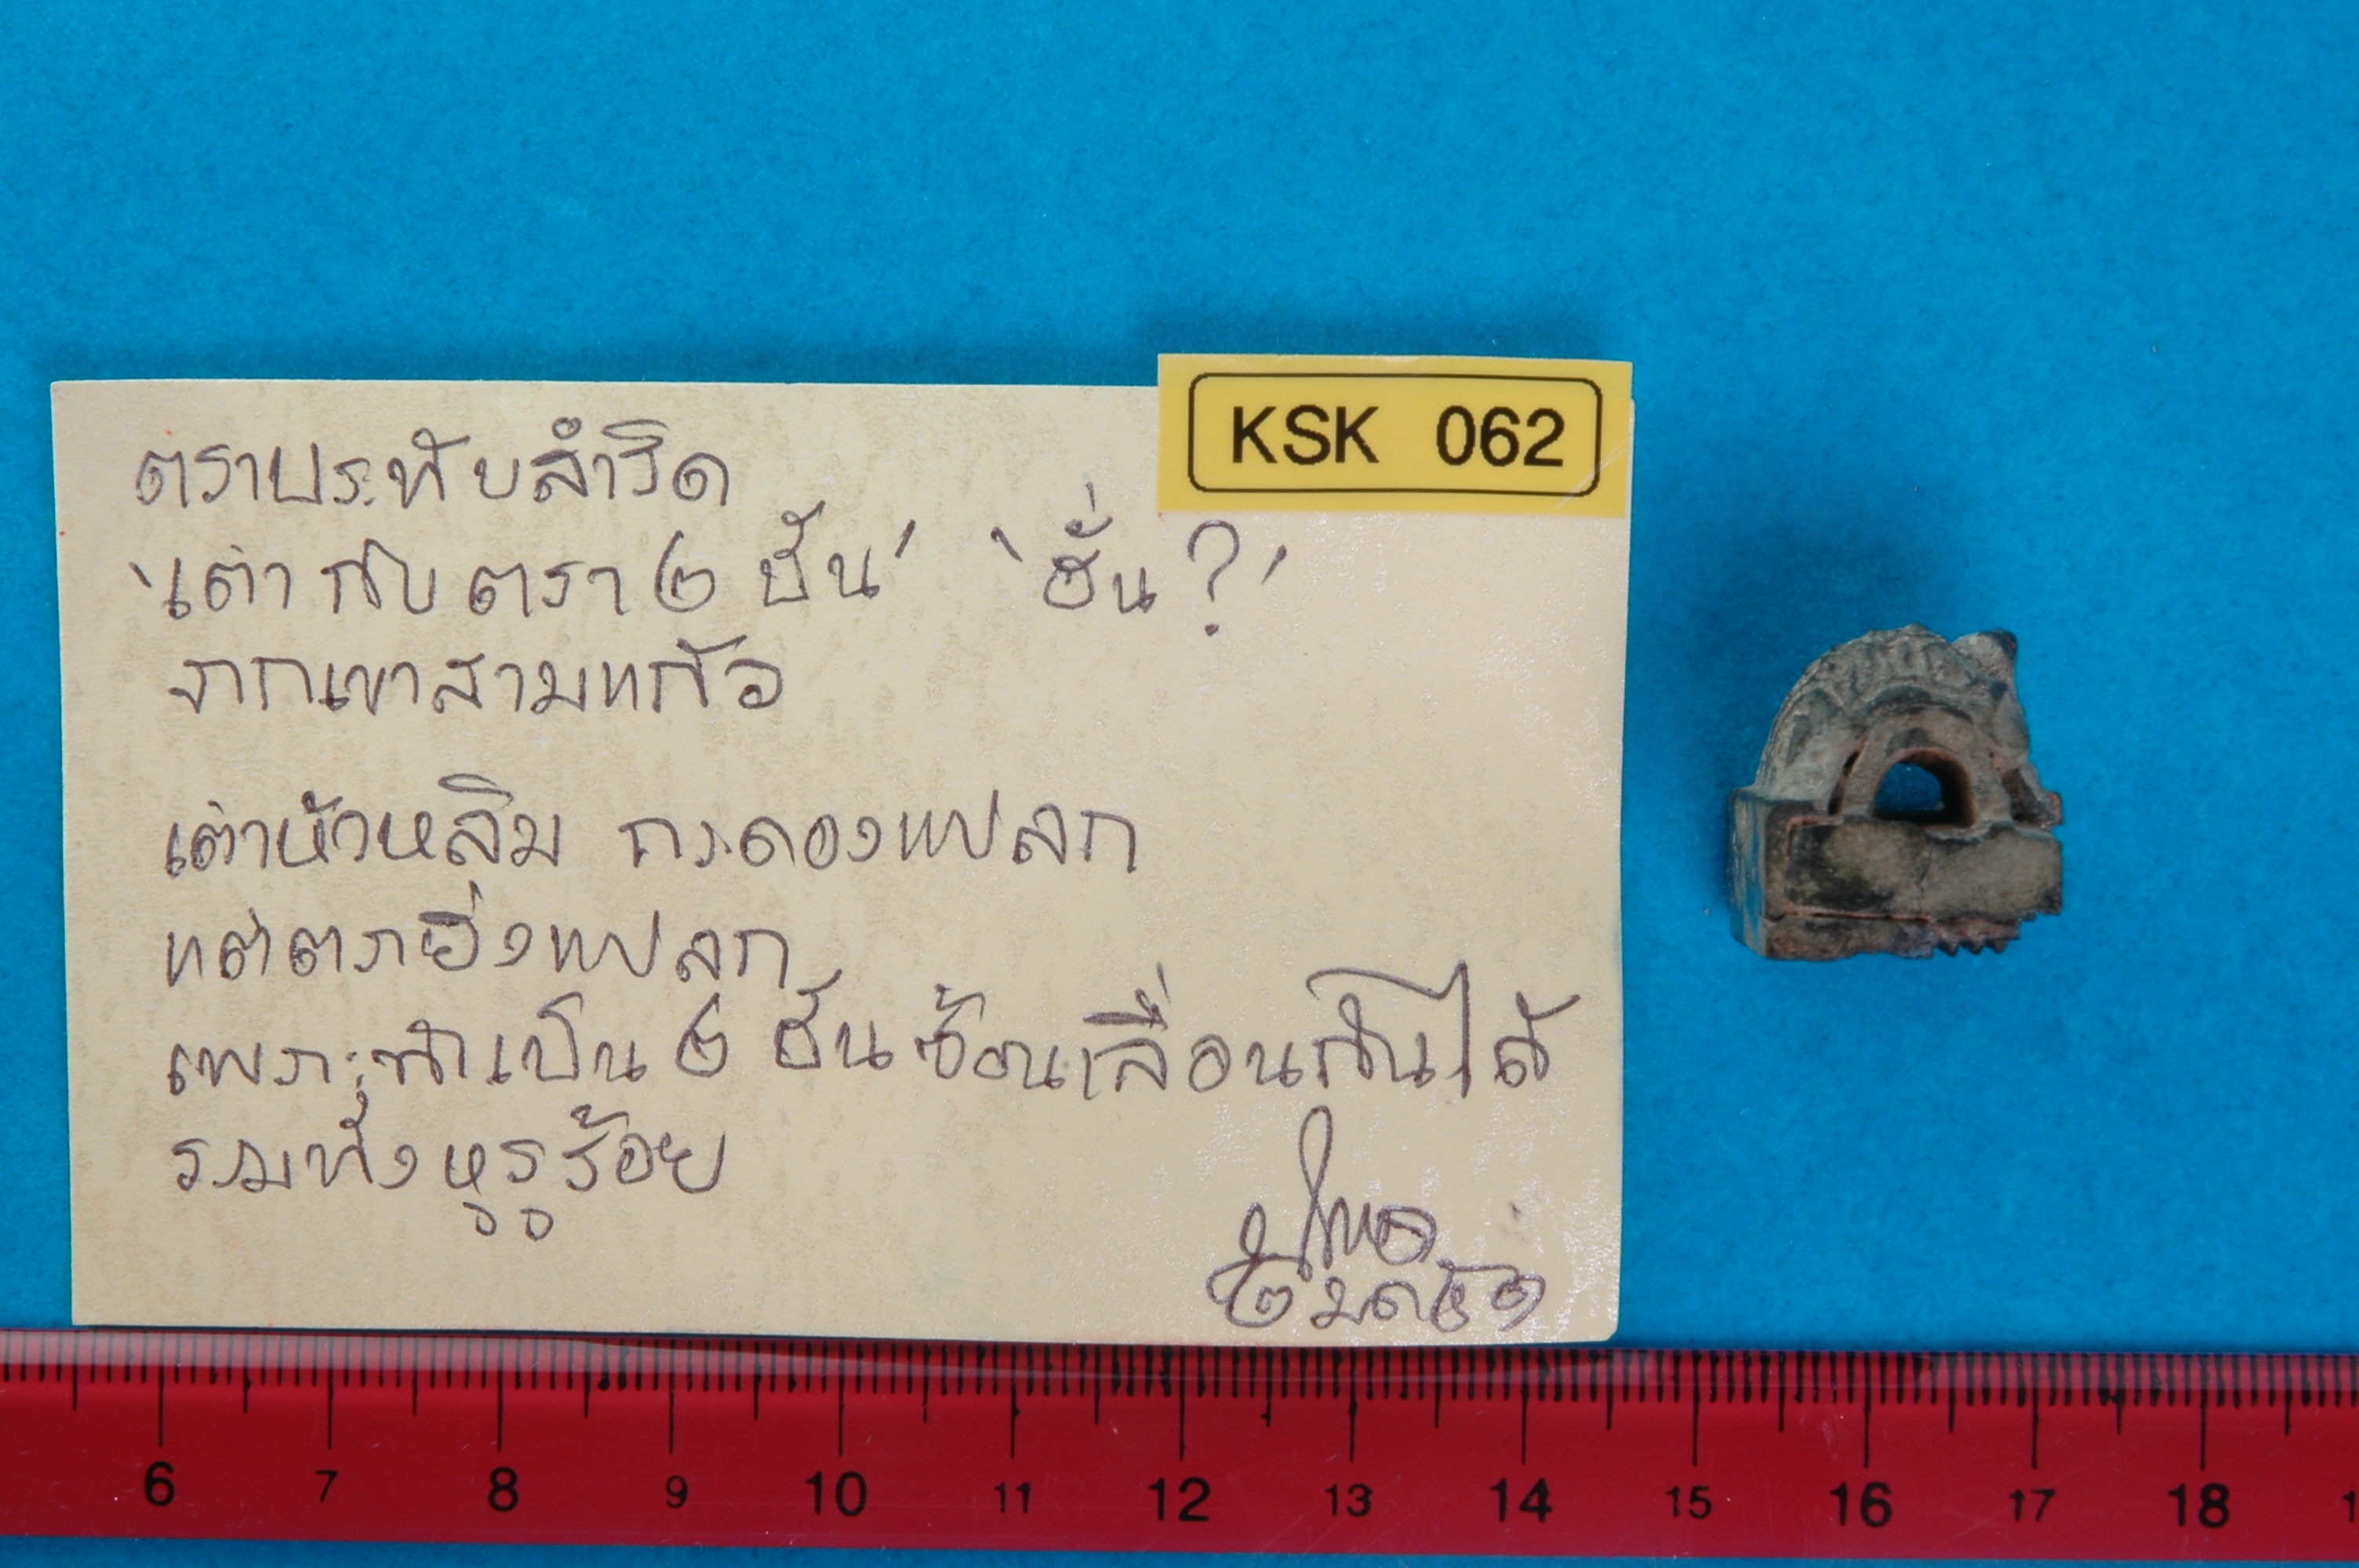 KSK 062
ตราประทับสำริด
'เต่ากับตรา ๒ ชั้น' 'ฮั่น ?'
จากเขาสามแก้ว
เต่าหัวหลิม กระดองแปลก
แต่ตรายิ่งแปลก
เพราะทำเป็น ๒ ชั้นซ้อนเลื่อนกันได้
รวมทั้งหูรูร้อย
๒
6 7 8 9 10 11 12 13 14 15 16 17 18